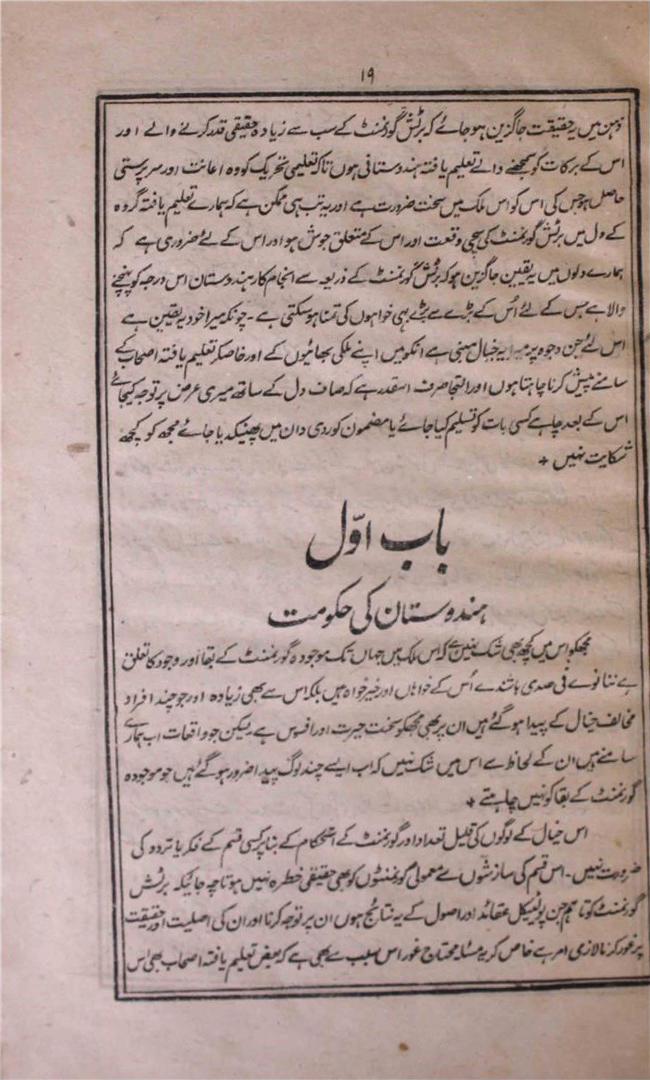 ۱۹
ذہن میں یہ حقیقت جاگزین ہو جائے کہ برٹش گورنمنٹ کے سب سے زیادہ حقیقی قدر کرنے والے اور
اس کے برکات کو سمجھنے والے تعلیم یافتہ ہندوستانی ہوں تاکہ تعلیمی تحریک کو وہ اعانت اور سرپرستی
حاصل ہو جس کی اس کو اس ملک میں سخت ضرورت ہے اور یہ تب ہی ممکن ہے کہ ہمارے تعلیم یافتہ گروہ
کے دل میں برٹش گورنمنٹ کی سچی وقعت اور اس کے متعلق جوش ہو اور اس کے لئے ضروری ہے کہ
ہمارے دلوں میں یہ یقین جاگزین ہو کہ برٹش گورنمنٹ کے ذریعہ سے انجام کار ہندوستان اس درجہ کو پہنچنے
والا ہے جس کے لئے اُس کے بڑے سے بڑے بہی خواہوں کی تمنا ہو سکتی ہے - چونکہ میرا خود یہ یقین ہے
اس لئے جن وجوہ پر میرا یہ خیال مبنی ہے انکو میں اپنے ملکی بھائیوں کے اور خاصکر تعلیم یافتہ اصحاب کے
سامنے پیش کرنا چاہتا ہوں اور التجا صرف اسقدر ہے کہ صاف دل کے ساتھ میری عرض پر توجہ کیجائے
اس کے بعد چاہے کسی بات کو تسلیم کیا جائے یا مضمون کو ردی دان میں پھینکدیا جائے مجھ کو کچھ
شکایت نہیں +
باب اوّل
ہندوستان کی حکومت
مجھکو اس میں کچھ بھی شک نہیں ہے کہ اس ملک میں جہاں تک موجودہ گورنمنٹ کے بقا اور وجود کا تعلق
ہے ننانوے فی صدی باشندے اُس کے خواہاں اور خیر خواہ ہیں بلکہ اس سے بھی زیادہ اور جو چند افراد
مخالف خیال کے پیدا ہو گئے ہیں ان پر بھی مجھکو سخت حیرت اور افسوس ہے لیکن جو واقعات اب ہمارے
سامنے ہیں ان کے لحاظ سے اس میں شک نہیں کہ اب ایسے چند لوگ پیدا ضرور ہو گئے ہیں جو موجودہ
گورنمنٹ کے بقا کو نہیں چاہتے +
اس خیال کے لوگوں کی قلیل تعداد اور گورنمنٹ کے استحکام کے بنا پر کسی قسم کے فکر یا تردد کی
ضرورت نہیں - اس قسم کی سازشوں سے معمولی گورنمنٹوں کو بھی حقیقی خطرہ نہیں ہوتا چہ جائیکہ برٹش
گورنمنٹ کو تاہم جن پولیٹیکل عقائد اور اصول کے یہ نتائج ہوں ان پر توجہ کرنا اور ان کی اصلیت اور حقیقت
پر غور کرنا لازمی امر ہے خاص کر یہ مسئلہ محتاج غور اس سبب سے بھی ہے کہ بعض تعلیم یافتہ اصحاب بھی اس